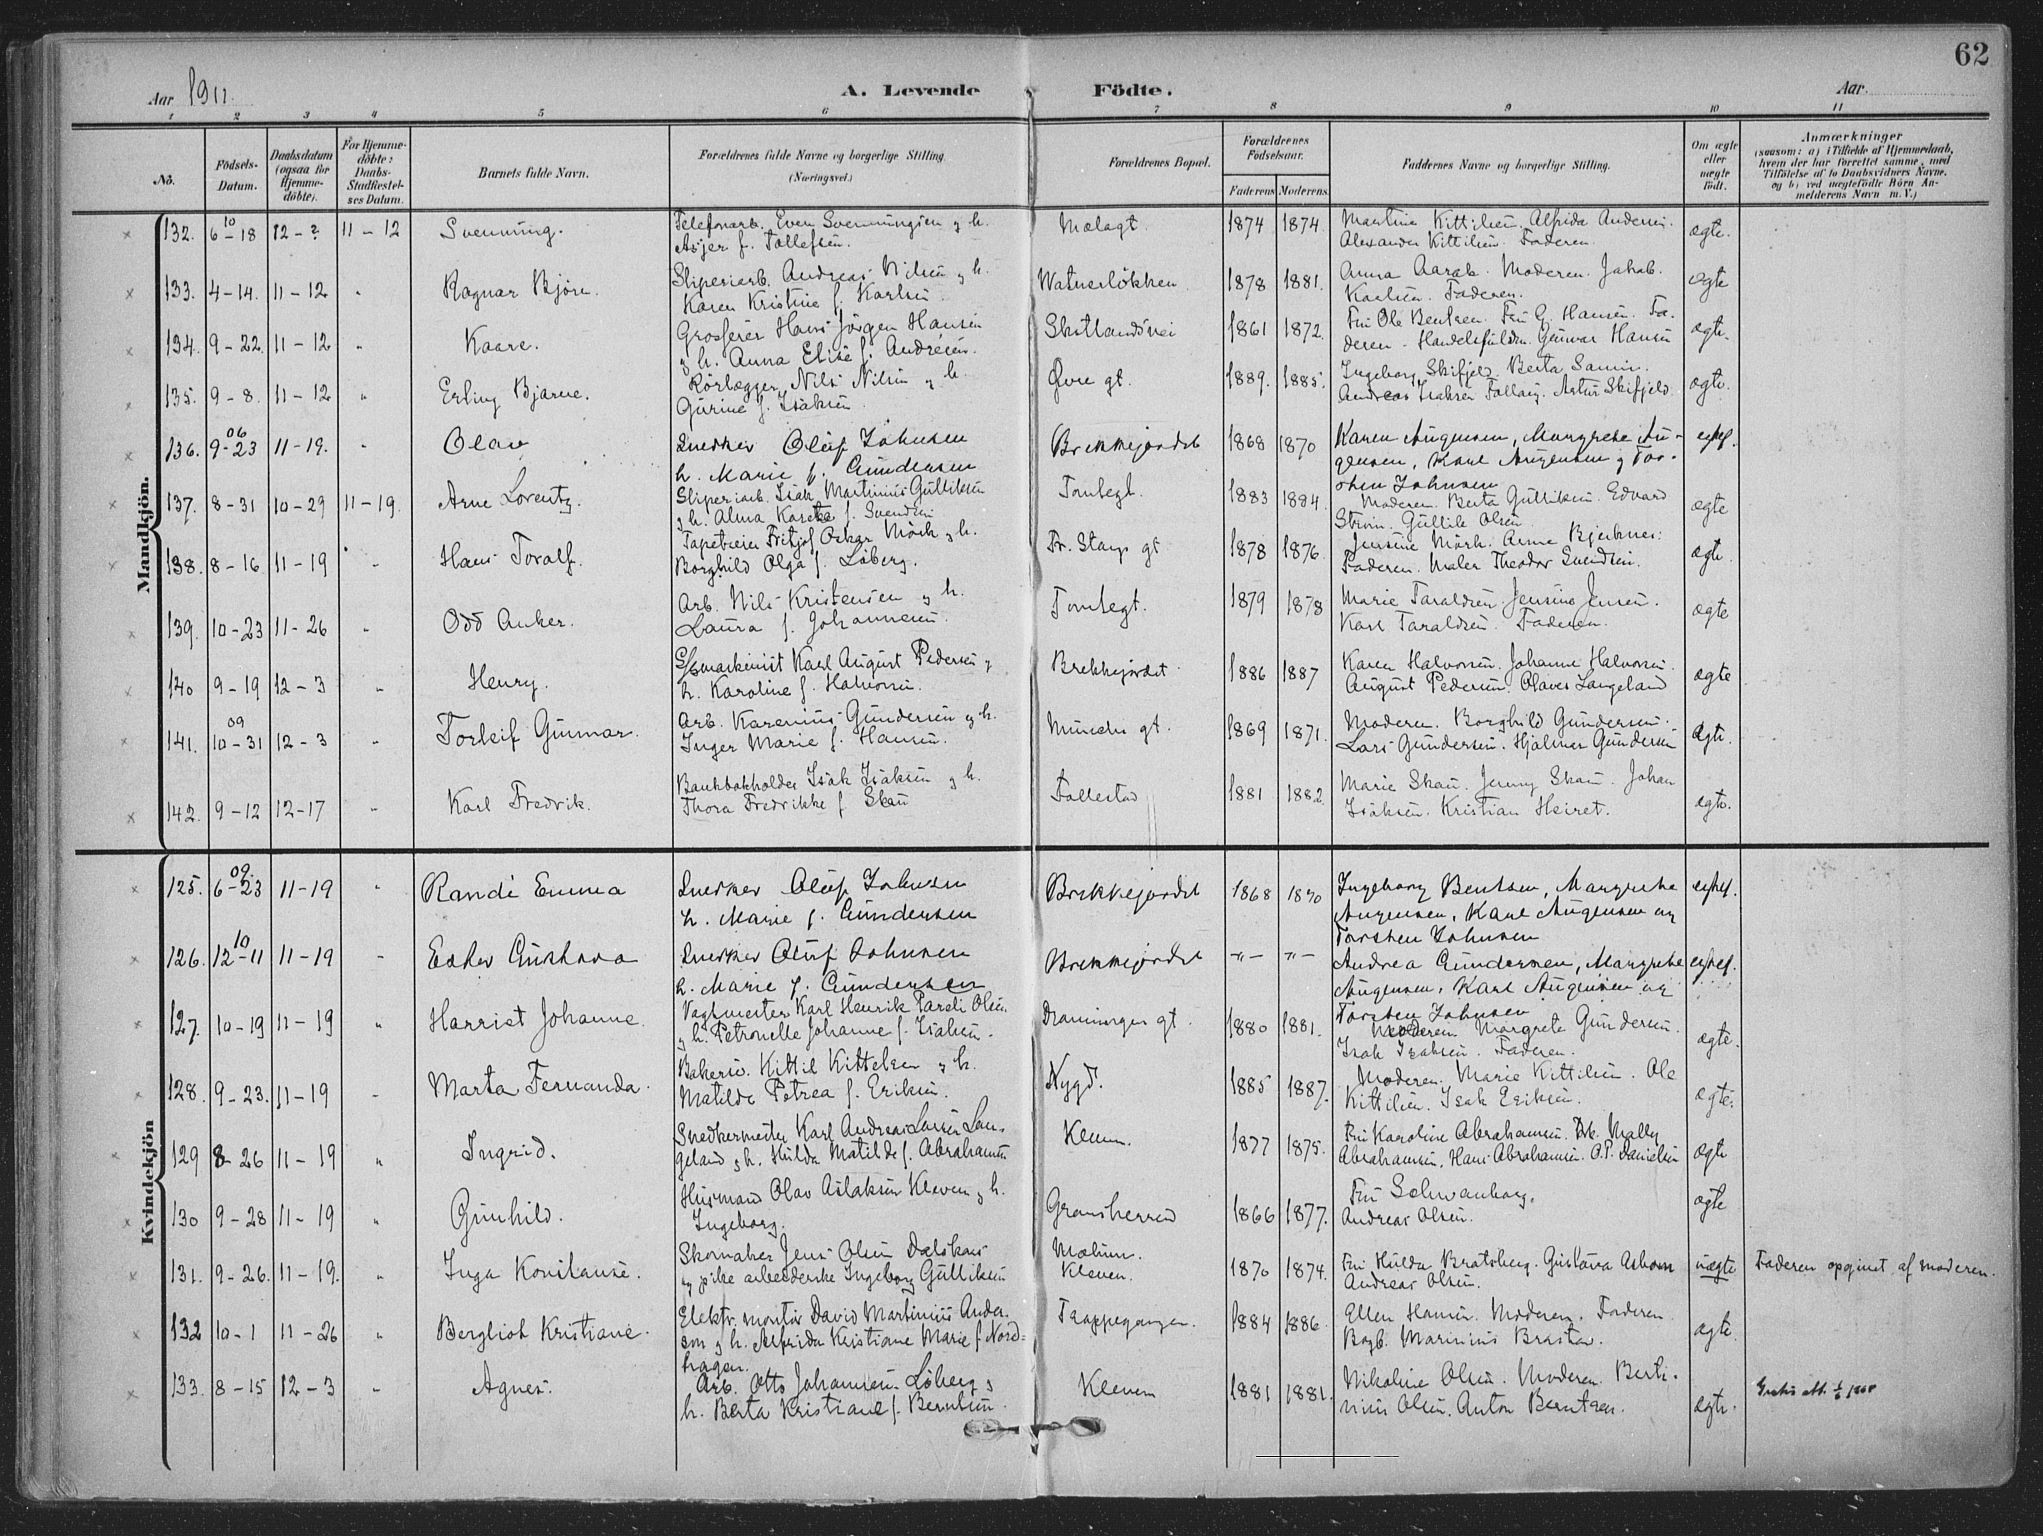 62
Aar 1911.
A. Levende Födte.
Aar
1 2 3 4 5 6 7 8 9 10 11
No.
Födsels-Datum.
Daabsdatum (ogsaa for Hjemme-döbte).
For Hjemme-döbte: Daabs-Stadfestel-ses Datum.
Barnets fulde Navn.
Forældrenes fulde Navne og borgerlige Stilling. (Næringsvei.)
Forældrenes Bopæl.
Forældrenes Födselsaar.
Faderens Moderens
Faddernes Navne og borgerlige Stilling.
Om ægte eller uægte födt.
Anmærkninger
(saasom: a) i Tilfælde af Hjemmedaab, hvem der har forrettet samme, med Tilföielse af to Daabsvidners Navne, og b) ved uægtefödte Börn An-melderens Navn m. V.)
Mandkjön.
132. 10 6-18 12-? 11-12 Svenning. Telefonarb. Even Svenningsen g h. Mælagt. 1874 1874. Martine Kittilsen. Alfrida Andersen. ægte.
Asjer f. Tollefsen. Alexander Kittilsen. Faderen.
133. 4-14. 11-12 " Ragnar Bjørn. Sliperiarb. Andreas Nilsen g h. 1878 1881. Anna Aarak. Moderen. Jakob ægte
Karen Kristine f. Karlsen. Karlsen. Faderen.
134. 9-22. 11-12 " Kaare. Grosserer Hans Jörgen Hansen 1861 1872. Fru Ole Bentsen. Fru G. Hansen. Fa- ægte.
g h. Anna Elise f. Andresen. deren. Gunvar Hansen
135. 9-8. 11-12 " Erling Bjarne. Rörlægger Nils Nilsen g h. Øvre gt. 1889. 1885. Ingeborg Skifjeld. Berta ægte.
Gurine f. Isaksen. Andreas Isaksen Artur Skifjeld
136. 06 9-23 11-19. " Olav Snedker Oluf Johnsen Brekkejordet 1868 1870 Karen Augensen, Margrete Au-
h. Marie f. Gundersen gensen, Karl Augensen g Tor-
sten Johnsen
137. 8-31 10-29 11-19. Arne Lorentz. Sliperiarb. Isak Martinius Gulliksen Tomtegt. 1883 1884. Moderen. Berta Gulliksen. Edvard ægte
g h. Alma f. Svendsen Gullik Olsen
138. 8-16 11-19 " Hans Toralf. Tapetserer Fritjof Oskar Mörk g h. Fr. Stangs gt 1878 1876. Jensine Mörk. Anne Bjerknes. ægte.
Borghild Olga f. Löberg. Faderen. Maler Theodor Svendsen.
139. 10-23 11-26 " Odd Anker. Arb. Nils Kristensen g h. Tomtegt. 1879 1878 Marie Taraldsen. Jensine Jensen. ægte
Laura f. Johannesen. Karl Taraldsen. Faderen.
140 9-19 12-3 " Henry. Karl August Pedersen g Brekkejordet. 1886 1887 Karen Halvorsen. Johanne Halvorsen. ægte
h. Karoline f. Halvorsen. August Pedersen. Olaves Langeland
141. 09 10-31 12-3 " Torleif Gunnar. Arb. Karenius Gundersen g h. Munchs gt. 1869 1871. Moderen. Borghild Gundersen. ægte.
Inger Marie f. Hansen. Lars Gundersen. Hjalmar Gundersen
142. 9-12 12-17 " Karl Fredrik. Bankbokholder Isak Isaksen g h. Follestad 1881 1882. Marie Skau. Jenny Skau. Johan ægte.
Thora Fredrikke f Skau Isaksen. Kristian Heiret.
Kvindekjön
125. 09. 6-23 11-19 " Randi Emma Snedker Oluf Johnsen Brekkejordet 1868 1870 Ingeborg Bentsen, Margrethe
h. Marie f. Gundersen Augensen, Karl Augensen og
Torsten Johnsen
126. 10 12-11 11-19 " Ester Gustava Snedker Oluf Johnsen Brekkejordet -"- -"- Andrea Gundersen, Margrethe
h. Marie f. Gundersen Augensen, Karl Augensen og
Torsten Johnsen
127. 10-19 11-19 " Harriet Johanne. Vagtmester Karl Henrik Olsen 1880 1881. Moderen Margrete Gundersen. ægte.
g h. Petronelle Johanne f. Isaksen. Isak Isaksen. Faderen.
128. 9-23. 11-19 " Marta Fernanda. Kittil Kittelsen g h. Nygd. 1885 1887. Moderen. Marie Kittilsen. Ole ægte.
Matilde Petrea f. Eriksen. Kittilsen. Isak Eriksen.
129 8-26 11-19 " Ingrid. Snedkermester Karl Andreas Larsen Lan- Kleven. 1877 1875. Fru Karoline Abrahamsen. Frk. Mally ægte
geland g h. Hulda Matilde f. Abrahamsen Abrahamsen, Hans Abrahamsen. O.P. Danielsen
130 9-28 11-19 " Gunhild. Husmand Olav Aslaksen Kleven g h. Gransherred 1866 1877. Fru Schwanborg. ægte
Ingeborg. Andreas Olsen.
131. 9-26. 11-19. " Inga Konstanse. Skomaker Jens Olsen Mælum. 1870 1874. Fru Hulda Bratsberg. Gustava uægte Faderen opgivet af moderen.
g pike arbeiderske Ingeborg Gulliksen Kleven. Andreas Olsen.
132 10-1 11-26 " Bergliot Kristiane. Elektr. montör David Martinius Ander- Trappegangen. 1884 1886. Ellen Hansen. Moderen. Faderen. ægte.
sen g h. Alfrida Kristiane Marie f Nord- Marinius
hagen.
133. 8-15 12-3 " Agnes. Arb. Otto Johansen Löberg g Kleven 1881 1881. Nikoline Olsen. Moderen. Berti- ægte.
h. Berta Kristiane f. Berntsen. nius Olsen. Anton Berntsen.